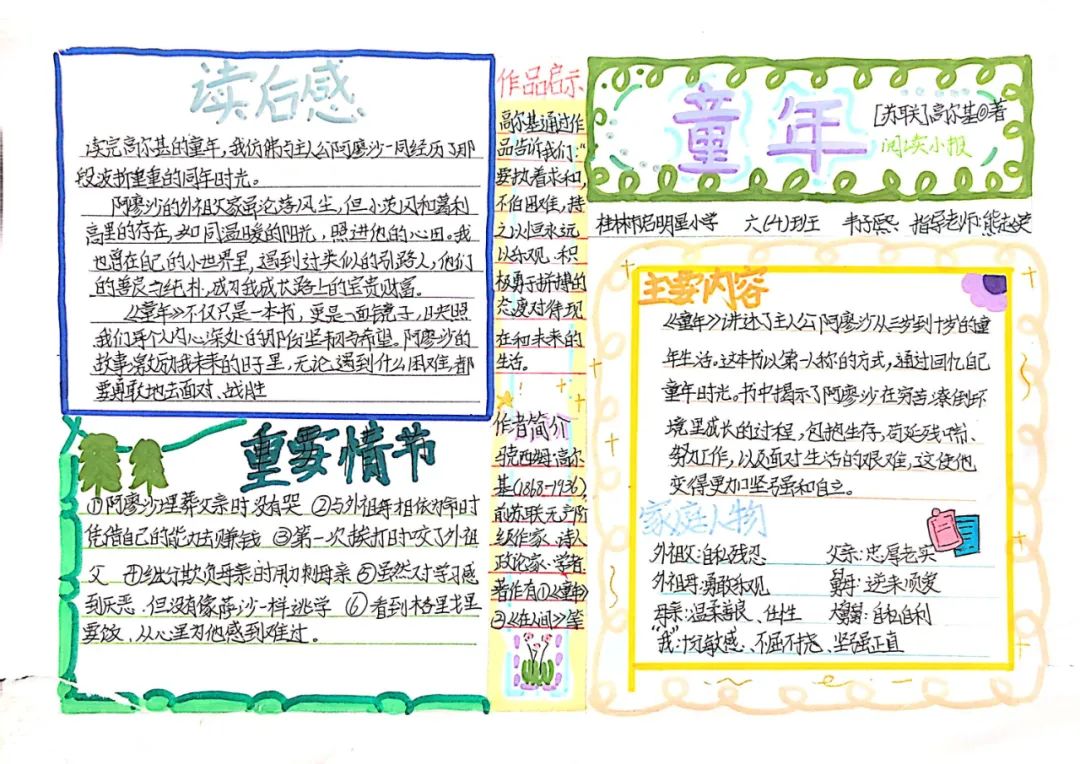 读后感
读完高尔基的童年，我仿佛与主人公阿廖沙一同经历了那
段波折重重的同年时光。
阿廖沙的外祖父家争论
但小茨冈和葛利
高里的存在，如同温暖的阳光，照进他的心田。我
也曾在自己的小世界里，遇到过类似的引路人，他们
的善良与纯朴，成为我成长路上的宝贵财富。
《童年》不仅只是一本书，更是一面镜子，映照
我们每个人内心深处的那份坚韧与希望。阿廖沙的
故事激励我未来的日子里，无论遇到什么困难，都
要勇敢地去面对、战胜
重要情节
①阿廖沙埋葬父亲时没有哭 ②与外祖母相依为命时
凭借自己的能力去赚钱 ③第一次挨打时咬了外祖
父 ④继父欺负母亲时用刀刺母亲 ⑤虽然对学习感
到厌恶，但没有像萨沙一样逃学 ⑥看到格里戈里
要饭，从心里为他感到难过。
作品启示
高尔基通过作
品告诉我们：“
要执着求和，
不怕困难，持
之以恒永远
以乐观、积
极勇于拼搏的
态度对待现
在和未来的
生活。
作者简介
马克西姆·高尔
基(1868-1936)，
前苏联无产阶
级作家、诗人
政论家、学者
著作有①《童年》
②《在人间》等
童年
[苏联]高尔基◎著
阅读小报
桂林市启明星小学 六(4)班 韦予熙 指导老师：熊
主要内容
《童年》讲述了主人公阿廖沙从三岁到十岁的童
年生活。这本书以第一人称的方式，通过回忆自己
童年时光。书中揭示了阿廖沙在穷苦潦倒环
境里成长的过程，包抱生存、苟延残喘、
努力工作，以及面对生活的艰难，这使他
变得更加坚强和自立。
家庭人物
外祖父：自私残忍 父亲：忠厚老实
外祖母：勇敢乐观 舅母：逆来顺受
母亲：温柔善良、任性 大舅舅：自私自利
“我”：十分敏感、不屈不挠、坚强正直